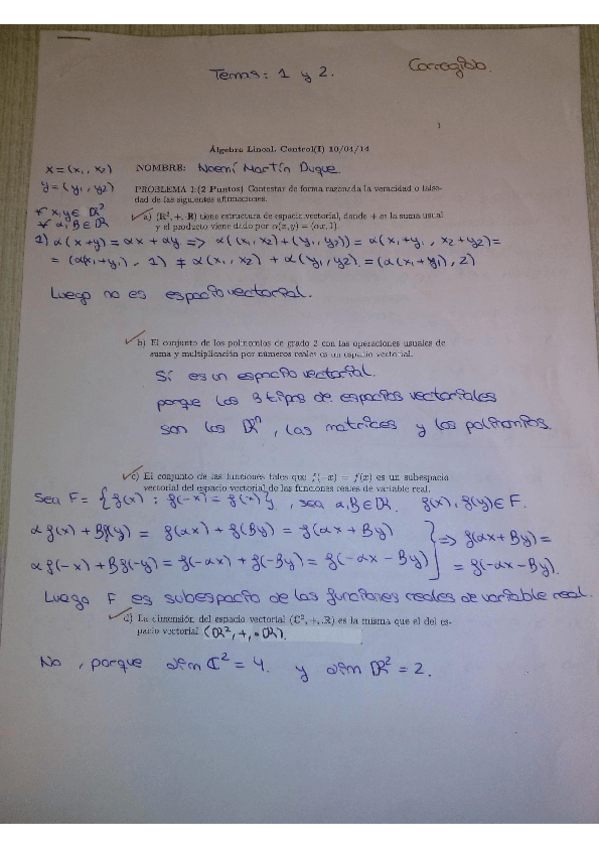 Corregido.
Tema: 1 y 2.
1
Álgebra Lineal. Control(I) 10/04/14
x=(x₁, x₂) NOMBRE: Noemí Martín Duque
y=(y₁, y₂) PROBLEMA 1:(2 Puntos) Contestar de forma razonada la veracidad o false-
dad de las siguientes afirmaciones.
* x,y ∈ ℝ²
* α,β ∈ ℝ
a) (ℝ², +, ·ℝ) tiene estructura de espacio vectorial, donde + es la suma usual
y el producto viene dado por α(x, y) = (αx, 1).
1) α(x+y) = αx + αy => α((x₁, x₂)+(y₁, y₂)) = α(x₁+y₁, x₂+y₂) =
= (α(x₁+y₁), 1) ≠ α(x₁, x₂) + α(y₁, y₂) = (α(x₁+y₁), 2)
Luego no es espacio vectorial.
b) El conjunto de los polinomios de grado 2 con las operaciones usuales de
suma y multiplicación por números reales es un espacio vectorial.
Sí es un espacio vectorial.
porque los 3 tipos de espacios vectoriales
son los ℝⁿ, las matrices y los polinomios.
c) El conjunto de las funciones tales que f(−x) = f(x) es un subespacio
vectorial del espacio vectorial de las funciones reales de variable real.
Sea F = {f(x) : f(-x) = f(x)}, sea α,β∈ℝ. f(x), f(y) ∈ F.
αf(x) + βf(y) = f(αx) + f(βy) = f(αx + βy)
αf(-x) + βf(-y) = f(-αx) + f(-βy) = f(-αx - βy)
} => f(αx+βy) =
= f(-αx-βy).
Luego F es subespacio de las funciones reales de variable real.
d) La dimensión del espacio vectorial (ℂ², +, ·ℝ) es la misma que el del es-
pacio vectorial (ℝ², +, ·ℝ).
No, porque dim ℂ² = 4. y dim ℝ² = 2.